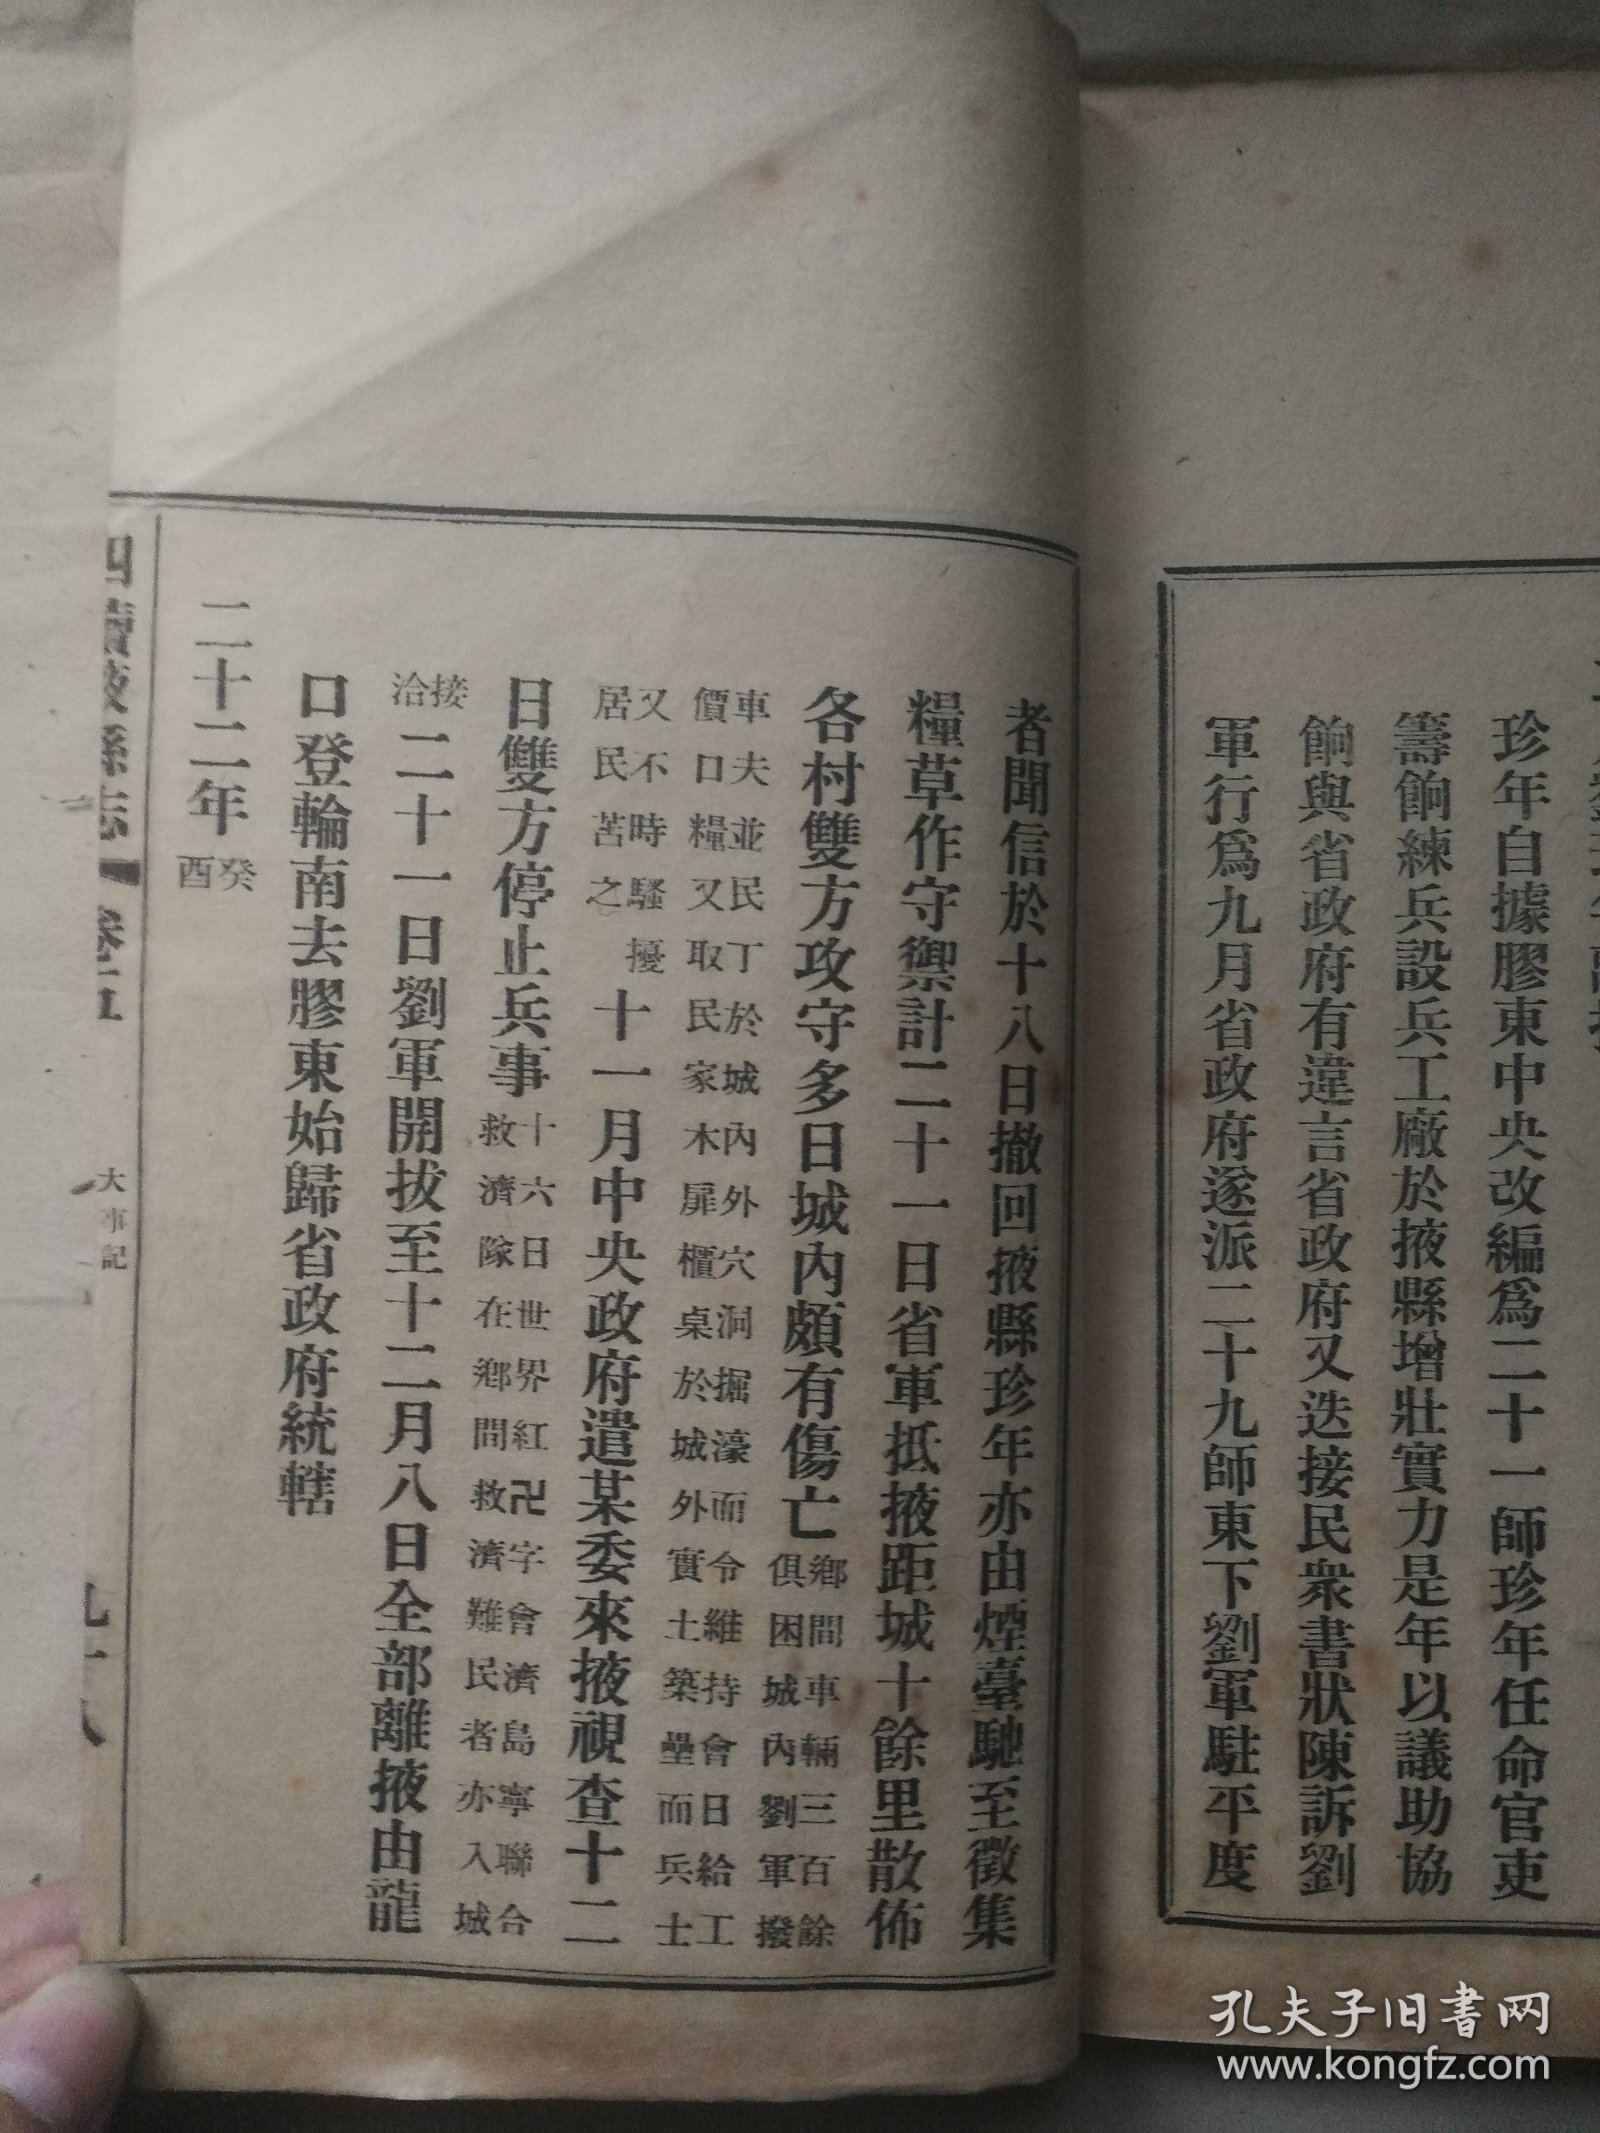 珍年自據膠東中央改編爲二十一師珍年任命官吏
籌餉練兵設兵工廠於掖縣增壯實力是年以議助協
餉與省政府有違言省政府又迭接民衆書狀陳訴劉
軍行爲九月省政府遂派二十九師東下劉軍駐平度
者聞信於十八日撤回掖縣珍年亦由煙臺馳至徵集
糧草作守禦計二十一日省軍抵掖距城十餘里散佈
各村雙方攻守多日城內頗有傷亡
鄉間車輛三百餘
俱困城內劉軍撥
車夫並民丁於城內外穴洞掘濠而令維持會日給工
價口糧又取民家木扉櫃桌於城外實土築壘而兵士
又不時騷擾
居民苦之
十一月中央政府遣某委來掖視查十二
日雙方停止兵事
十六日世界紅卍字會濟島寧聯合
救濟隊在鄉間救濟難民者亦入城
接
洽
二十一日劉軍開拔至十二月八日全部離掖由龍
口登輪南去膠東始歸省政府統轄
二十二年
癸
酉
四續掖縣志 卷五 大事記 九十八
孔夫子旧书网
www.kongfz.com